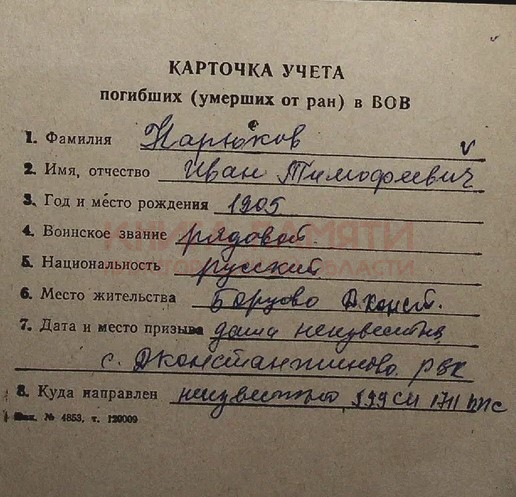 КАРТОЧКА УЧЕТА
погибших (умерших от ран) в ВОВ
1. Фамилия Нарюков
2. Имя, отчество Иван Тимофеевич
3. Год и место рождения 1905
4. Воинское звание рядовой
5. Национальность русский
6. Место жительства Борцово Д Конст.
7. Дата и место призыва дата неизвестна
с. Дконстантиново РВК
8. Куда направлен неизвестно 399 СД 1711 ППС
№ 4853, т. 120009
КНИГА ПАМЯТИ
ОБЛАСТИ